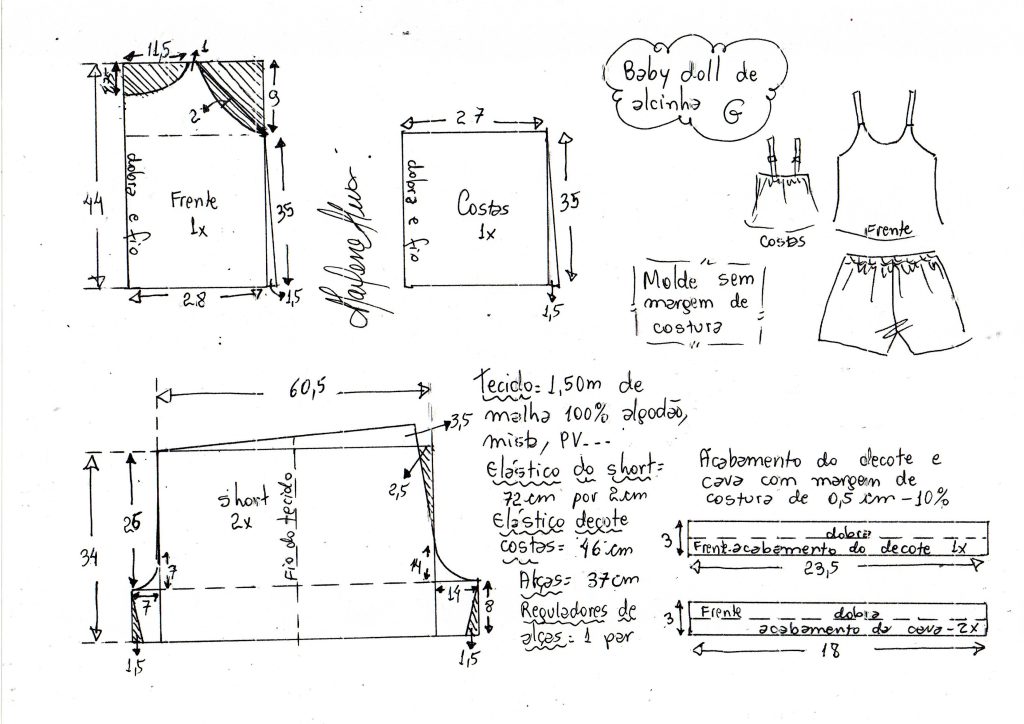 Baby doll de
alcinha G
11,5
1
44
2
9
dobra e fio
Frente
1x
35
28
1,5
27
dobra e fio
Costas
1x
35
1,5
Costas
Frente
Molde sem
margem de
costura
60,5
3,5
2,5
34
26
short
2x
Fio do tecido
7
7
14
14
8
1,5
1,5
Tecido= 1,50m de
malha 100% algodão,
misto, PV---
Elástico do short=
72 cm por 2 cm
Elástico decote
costas= 46 cm
Alças= 37 cm
Reguladores de
alças= 1 par
Acabamento do decote e
cava com margem de
costura de 0,5 cm - 10%
3
dobra
Frente-acabamento do decote 1x
23,5
3
Frente dobra
acabamento da cava-2x
18